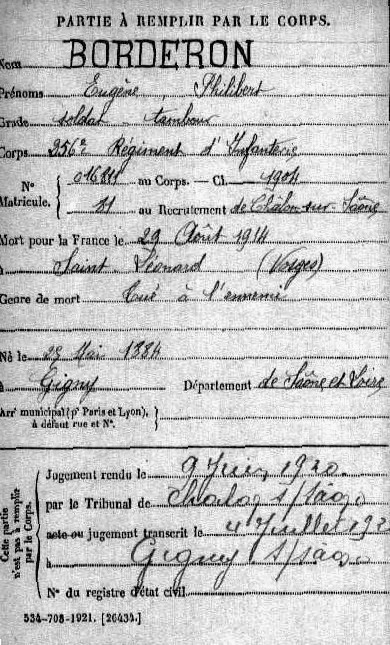 PARTIE À REMPLIR PAR LE CORPS.
Nom BORDERON
Prénoms Eugène, Philibert
Grade soldat tambour
Corps 256e Régiment d'Infanterie
N° Matricule. { au Corps. — Cl. 1904
11 au Recrutement de Chalon-sur-Saône
Mort pour la France le 29 Août 1914
à Saint Léonard (Vosges)
Genre de mort Tué à l'ennemi
Né le Mai 1884
à Gigny Département de Saône et Loire
Arrt municipal (pr Paris et Lyon), à défaut rue et N°. }
Cette partie n'est pas à remplir par le Corps.
Jugement rendu le 9 Juin 1920
par le Tribunal de Chalon s/Saône
acte ou jugement transcrit le 4 Juillet 192
à Gigny s/Saône
N° du registre d'état civil
534-708-1921. [26434.]